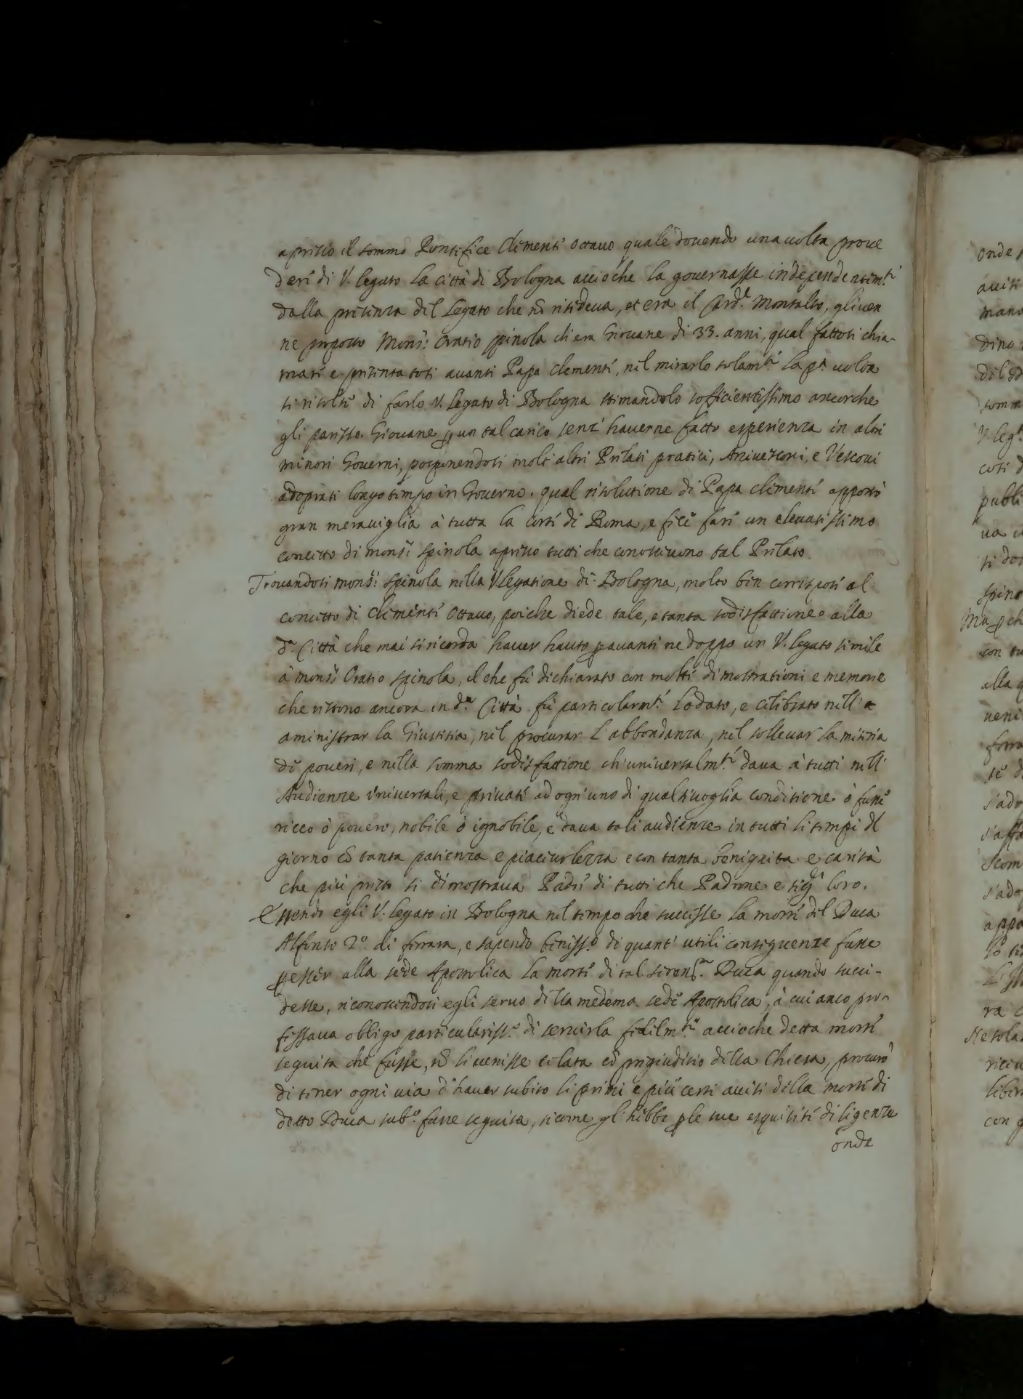 apresso il sommo Pontefice Clemente Ottavo quale dovendo una volta prove
der di V. legato la città di Bologna accioche la governasse independentem.te
dalla presenza del Legato che nõ risedeva, et era il Card.l Montalto, gli ven
ne proposto Mons.r Oratio spinola ch'era Giovane di 33. anni, qual fattosi chia-
mare e presentatosi avanti Papa clemente, nel mirarlo solam.te la p.a volta
si risolse di farlo V. Legato di Bologna stimandolo sofficientissimo ancorche
gli paresse Giovane p un tal carico senz' haverne fatto esperienza in altri
minori Governi, posponendosi molt' altri Prelati pratici, Arcivescovi, e Vescovi
adoprati longo tempo in Governo. qual risolutione di Papa clemente apportò
gran meraviglia à tutta la corte di Roma, e fece fare un elevatissimo
concetto di mons.r spinola apresso tutti che conoscevono tal Prelato.
Trovandosi mons.r spinola nella V.legatione di Bologna, molto ben corrispose al
concetto di Clemente Ottavo, poiche diede tale, e tanta sodisfattione alla
d.a Città che mai si ricorda haver hauto p avanti ne doppo un V. legato simile
à mons.r Oratio spinola, il che fù dichiarato con molte dimostrationi e memorie
che vi sono ancora in d.a Città. fù particolarm.te Lodato, e celebrato nell' a
aministrar la Giustitia, nel procurar l'abbondanza, nel sollevar la miseria
de poveri, e nella somma sodisfattione ch'universalm.te dava à tutti nell'
Audienze universali, e private ad ogn'uno di qual si voglia conditione ò fusse
ricco ò povero, nobile ò ignobile, e dava tali audienze in tutti li tempi del
giorno cõ tanta patienza e piacevolezza e con tanta benignita e carità
che più presto si dimostrava Padre di tutti che Padrone e sig.r loro.
Essendo egli V. legato in Bologna nel tempo che successe la morte del Duca
Alfonso 2.o di ferrara, e sapendo beniss.o di quant' utili conseguenze fusse
p esser alla sede Apostolica la morte di tal Duca quando succe-
desse, riconoscendosi egli servo della medema sede Apostolica, à cui anco pro-
fessava obligo particularis.o di servirla fidelm.te accioche detta morte
seguita che fusse, nõ li venisse celata ed pregiuditio della Chiesa, procurò
di tener ogni via d'haver subito li primi e più certi avisi della morte di
detto Duca sub.o fusse seguita, sicome gl'hebbe p le sue esquisite diligenze
onde